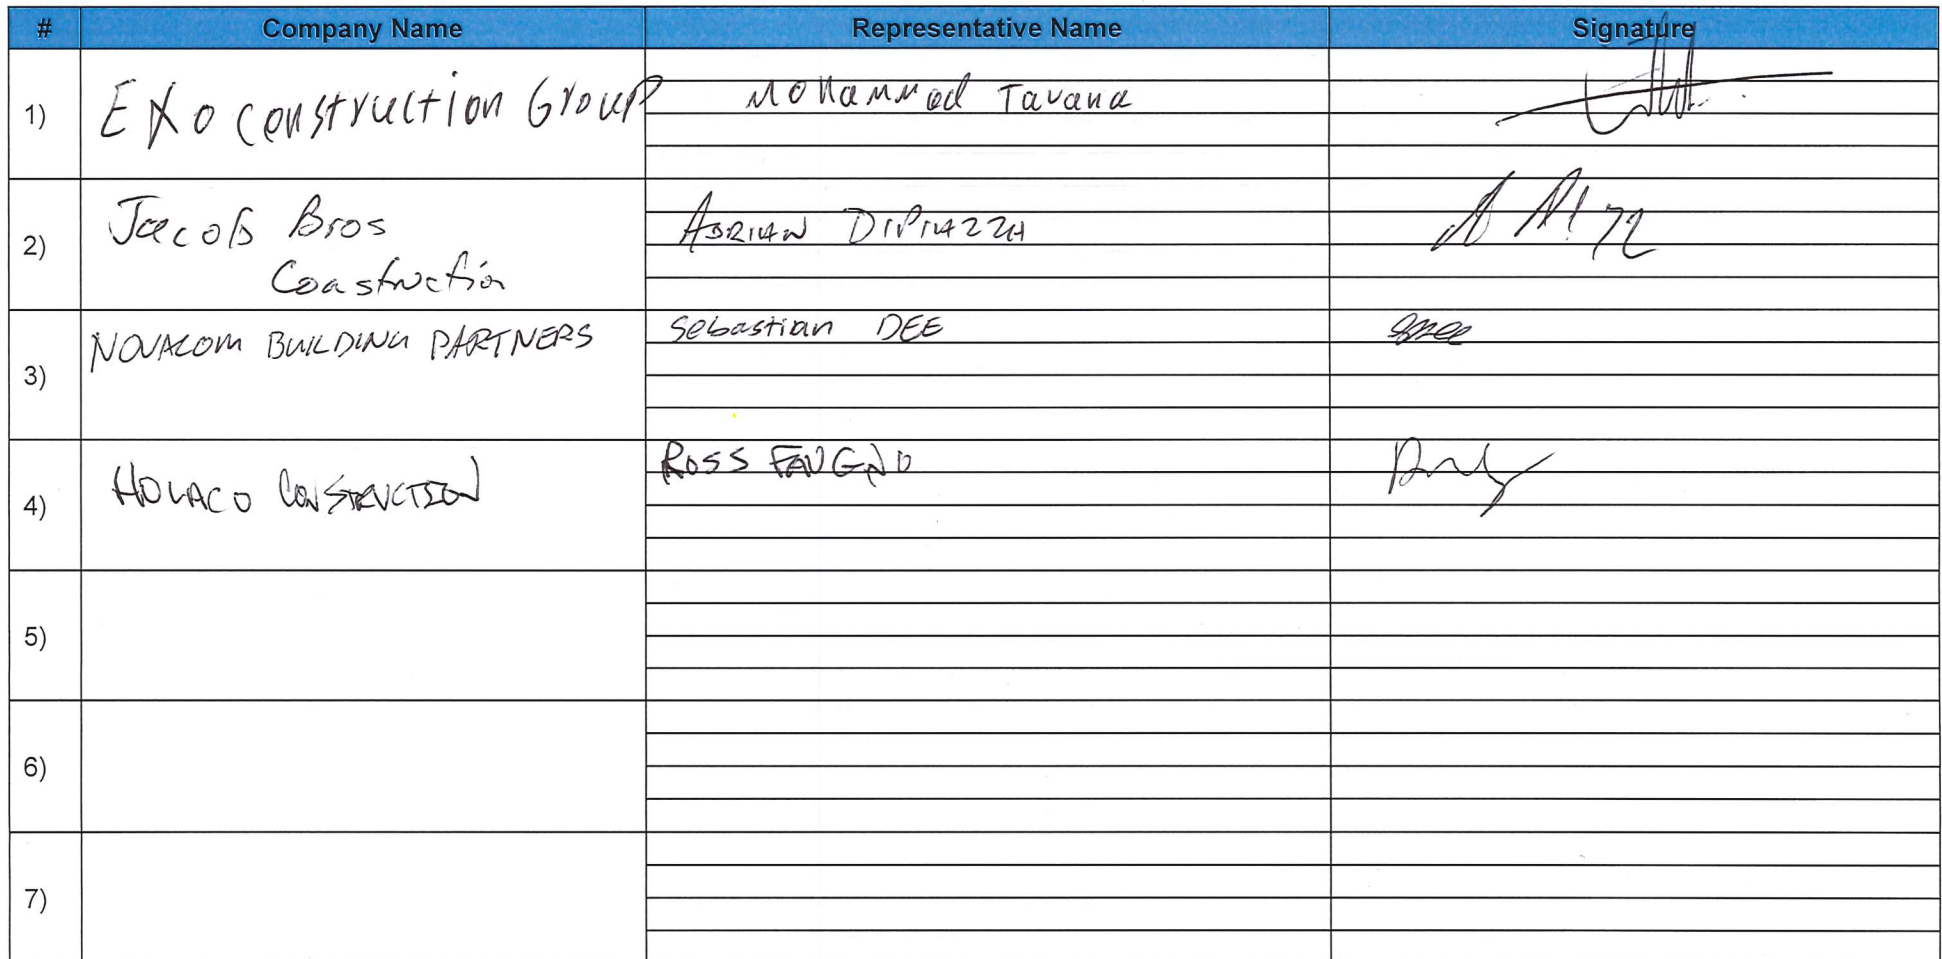 # Company Name Representative Name Signature
1) EXO construction Group Mohammad Tavana
2) Jacob Bros Construction ADRIAN DIPIAZZA
3) NOVACOM BUILDING PARTNERS Sebastian DEE
4) HOLACO CONSTRUCTION ROSS FAUGNO
5)
6)
7)